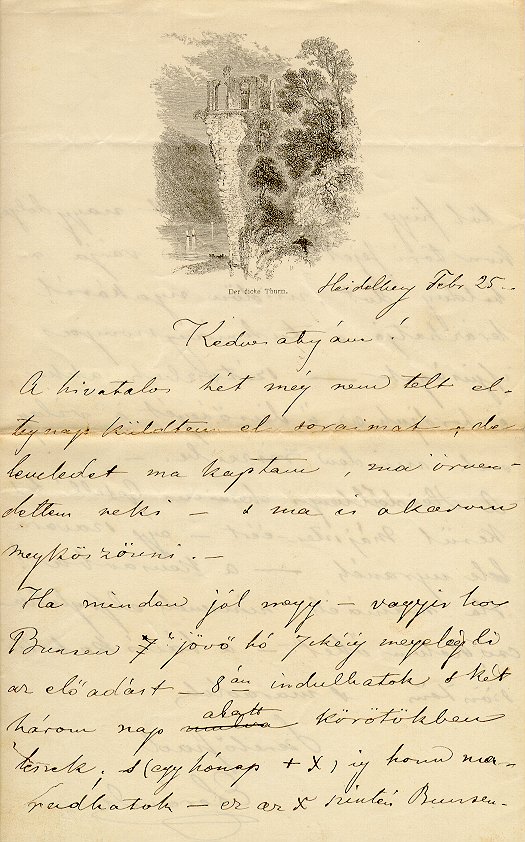 Der dicke Thurm.
Heidelberg Febr 25.
Kedves atyám!
A hivatalos hét még nem telt el –
tegnap küldtem el soraimat, de
leveledet ma kaptam, ma örven-
dettem neki – s ma is akarom
megköszönni. –
Ha minden jól megy – vagyis ha
Bunsen jövő hó 7kéig megelégli
az előadást – 8án indulhatok s két
három nap alatt körötökben
leszek; s (egy hónap + X) ig honn ma-
radhatok – ez az X szintén Bunsen-